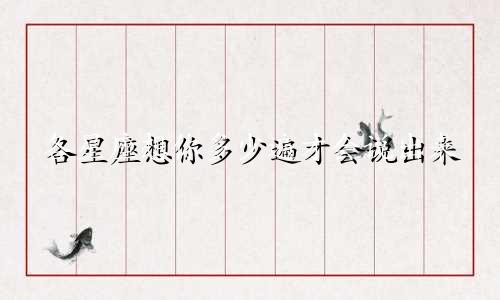 各星座想你多少遍才会说出来